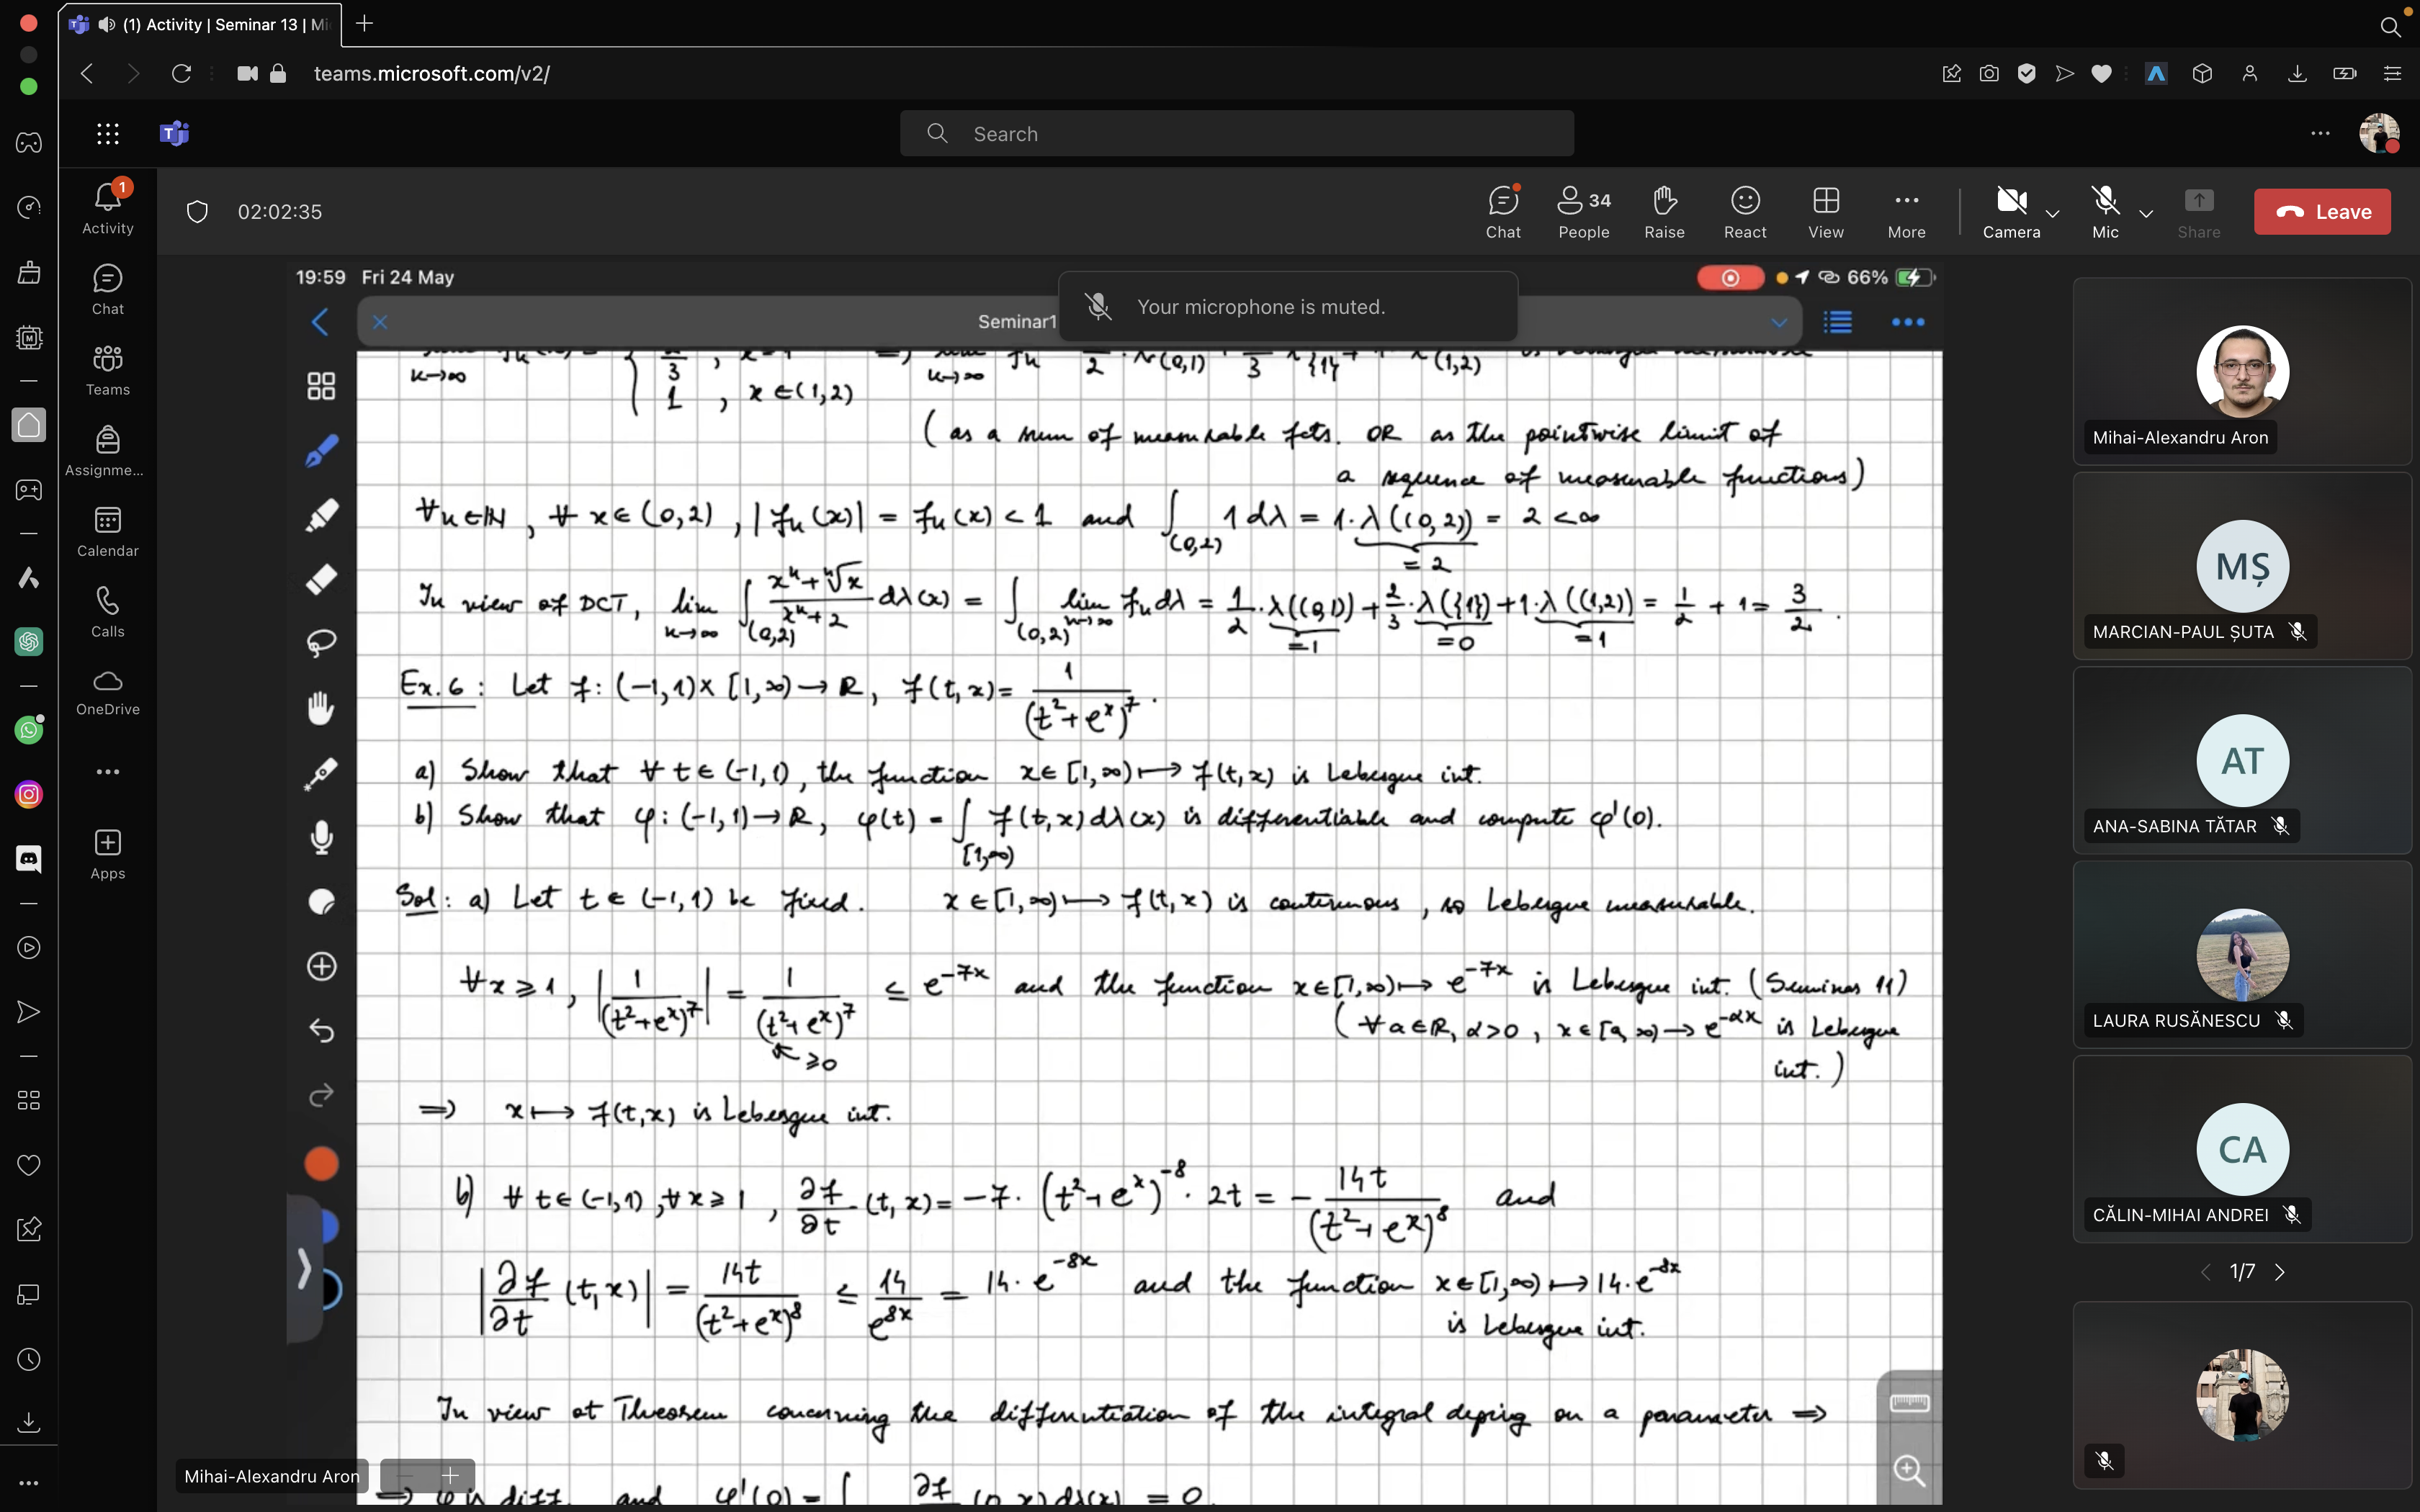 (1) Activity | Seminar 13 | Mi
teams.microsoft.com/v2/
Search
02:02:35
Chat
People 34
Raise
React
View
More
Camera
Mic
Share
Leave
1
Activity
Chat
Teams
Assignme...
Calendar
Calls
OneDrive
Apps
19:59 Fri 24 May
66%
Your microphone is muted.
Seminar1
k→∞ { 2/3 , x=1 ⇒ k→∞ fk 1/2 · χ(0,1) + 2/3 χ{1} + 1 · χ(1,2)
1 , x ∈ (1,2)
( as a sum of measurable fcts. OR as the pointwise limit of
a sequence of measurable functions)
∀n∈ℕ, ∀ x∈(0,2), |fn(x)| = fn(x) < 1 and ∫(0,2) 1 dλ = 1·λ((0,2)) = 2 <∞
= 2
In view of DCT, lim n→∞ ∫(0,2) (x^n + ⁿ√x)/(x^n + 2) dλ(x) = ∫(0,2) lim n→∞ fn dλ = 1/2·λ((0,1)) + 2/3·λ({1}) + 1·λ((1,2)) = 1/2 + 1 = 3/2.
=1 =0 =1
Ex.6: Let f: (-1,1)×[1,∞) → ℝ, f(t,x) = 1/(t²+e^x)^7.
a) Show that ∀ t∈(-1,1), the function x∈[1,∞) ↦ f(t,x) is Lebesgue int.
b) Show that φ: (-1,1) → ℝ, φ(t) = ∫[1,∞) f(t,x) dλ(x) is differentiable and compute φ'(0).
Sol: a) Let t∈(-1,1) be fixed. x∈[1,∞) ↦ f(t,x) is continuous, so Lebesgue measurable.
∀x ⩾ 1, |1/(t²+e^x)^7| = 1/(t²+e^x)^7 ≤ e^{-7x} and the function x∈[1,∞) ↦ e^{-7x} is Lebesgue int. (Seminar 11)
⩾0
( ∀a∈ℝ, α>0, x∈[a,∞) → e^{-αx} is Lebesgue
int. )
⇒ x ↦ f(t,x) is Lebesgue int.
b) ∀ t∈(-1,1), ∀x ⩾ 1, ∂f/∂t (t,x) = -7·(t²+e^x)^{-8}·2t = - 14t/(t²+e^x)^8 and
|∂f/∂t (t,x)| = 14t/(t²+e^x)^8 ≤ 14/e^{8x} = 14·e^{-8x} and the function x∈[1,∞) ↦ 14·e^{-8x}
is Lebesgue int.
In view of Theorem concerning the differentiation of the integral deping on a parameter ⇒
⇒ φ is diff. and φ'(0) = ∫ ∂f (0,x) dλ(x) = 0.
Mihai-Alexandru Aron
Mihai-Alexandru Aron
MȘ
MARCIAN-PAUL ȘUTA
AT
ANA-SABINA TĂTAR
LAURA RUSĂNESCU
CA
CĂLIN-MIHAI ANDREI
1/7